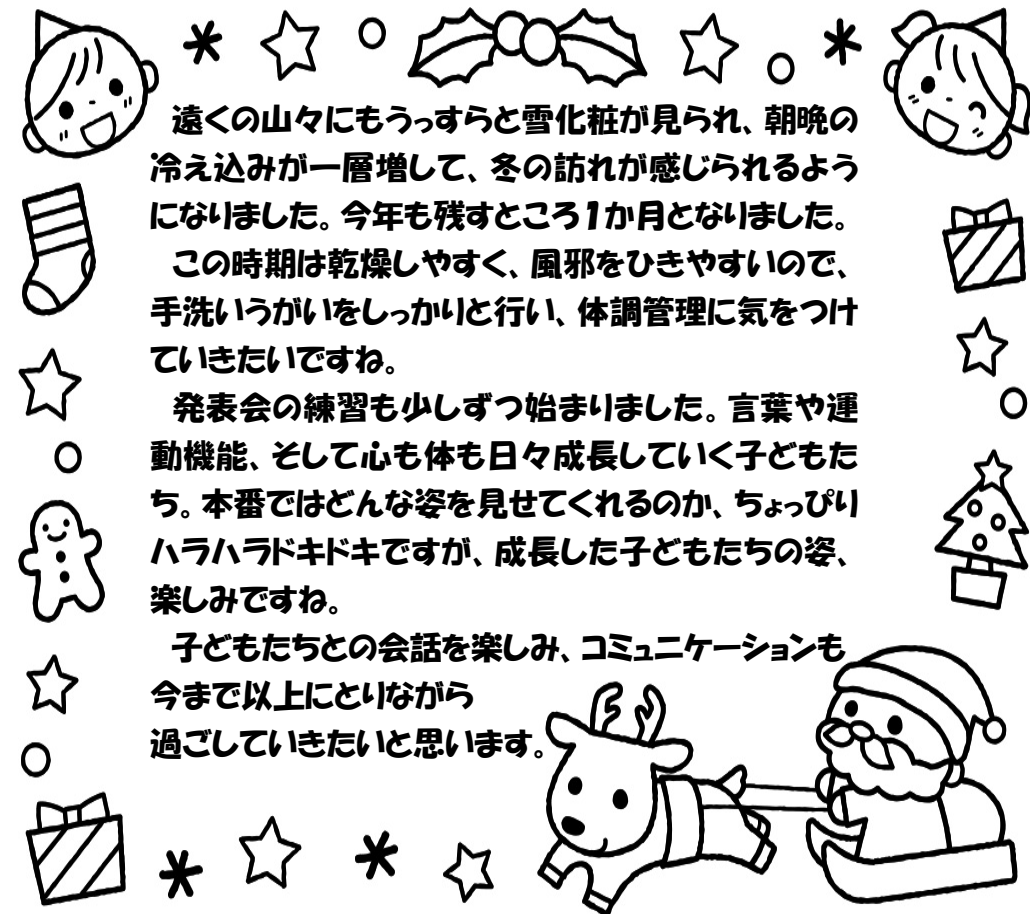 遠くの山々にもうっすらと雪化粧が見られ、朝晩の
冷え込みが一層増して、冬の訪れが感じられるよう
になりました。今年も残すところ1か月となりました。
この時期は乾燥しやすく、風邪をひきやすいので、
手洗いうがいをしっかりと行い、体調管理に気をつけ
ていきたいですね。
発表会の練習も少しずつ始まりました。言葉や運
動機能、そして心も体も日々成長していく子どもた
ち。本番ではどんな姿を見せてくれるのか、ちょっぴり
ハラハラドキドキですが、成長した子どもたちの姿、
楽しみですね。
子どもたちとの会話を楽しみ、コミュニケーションも
今まで以上にとりながら
過ごしていきたいと思います。